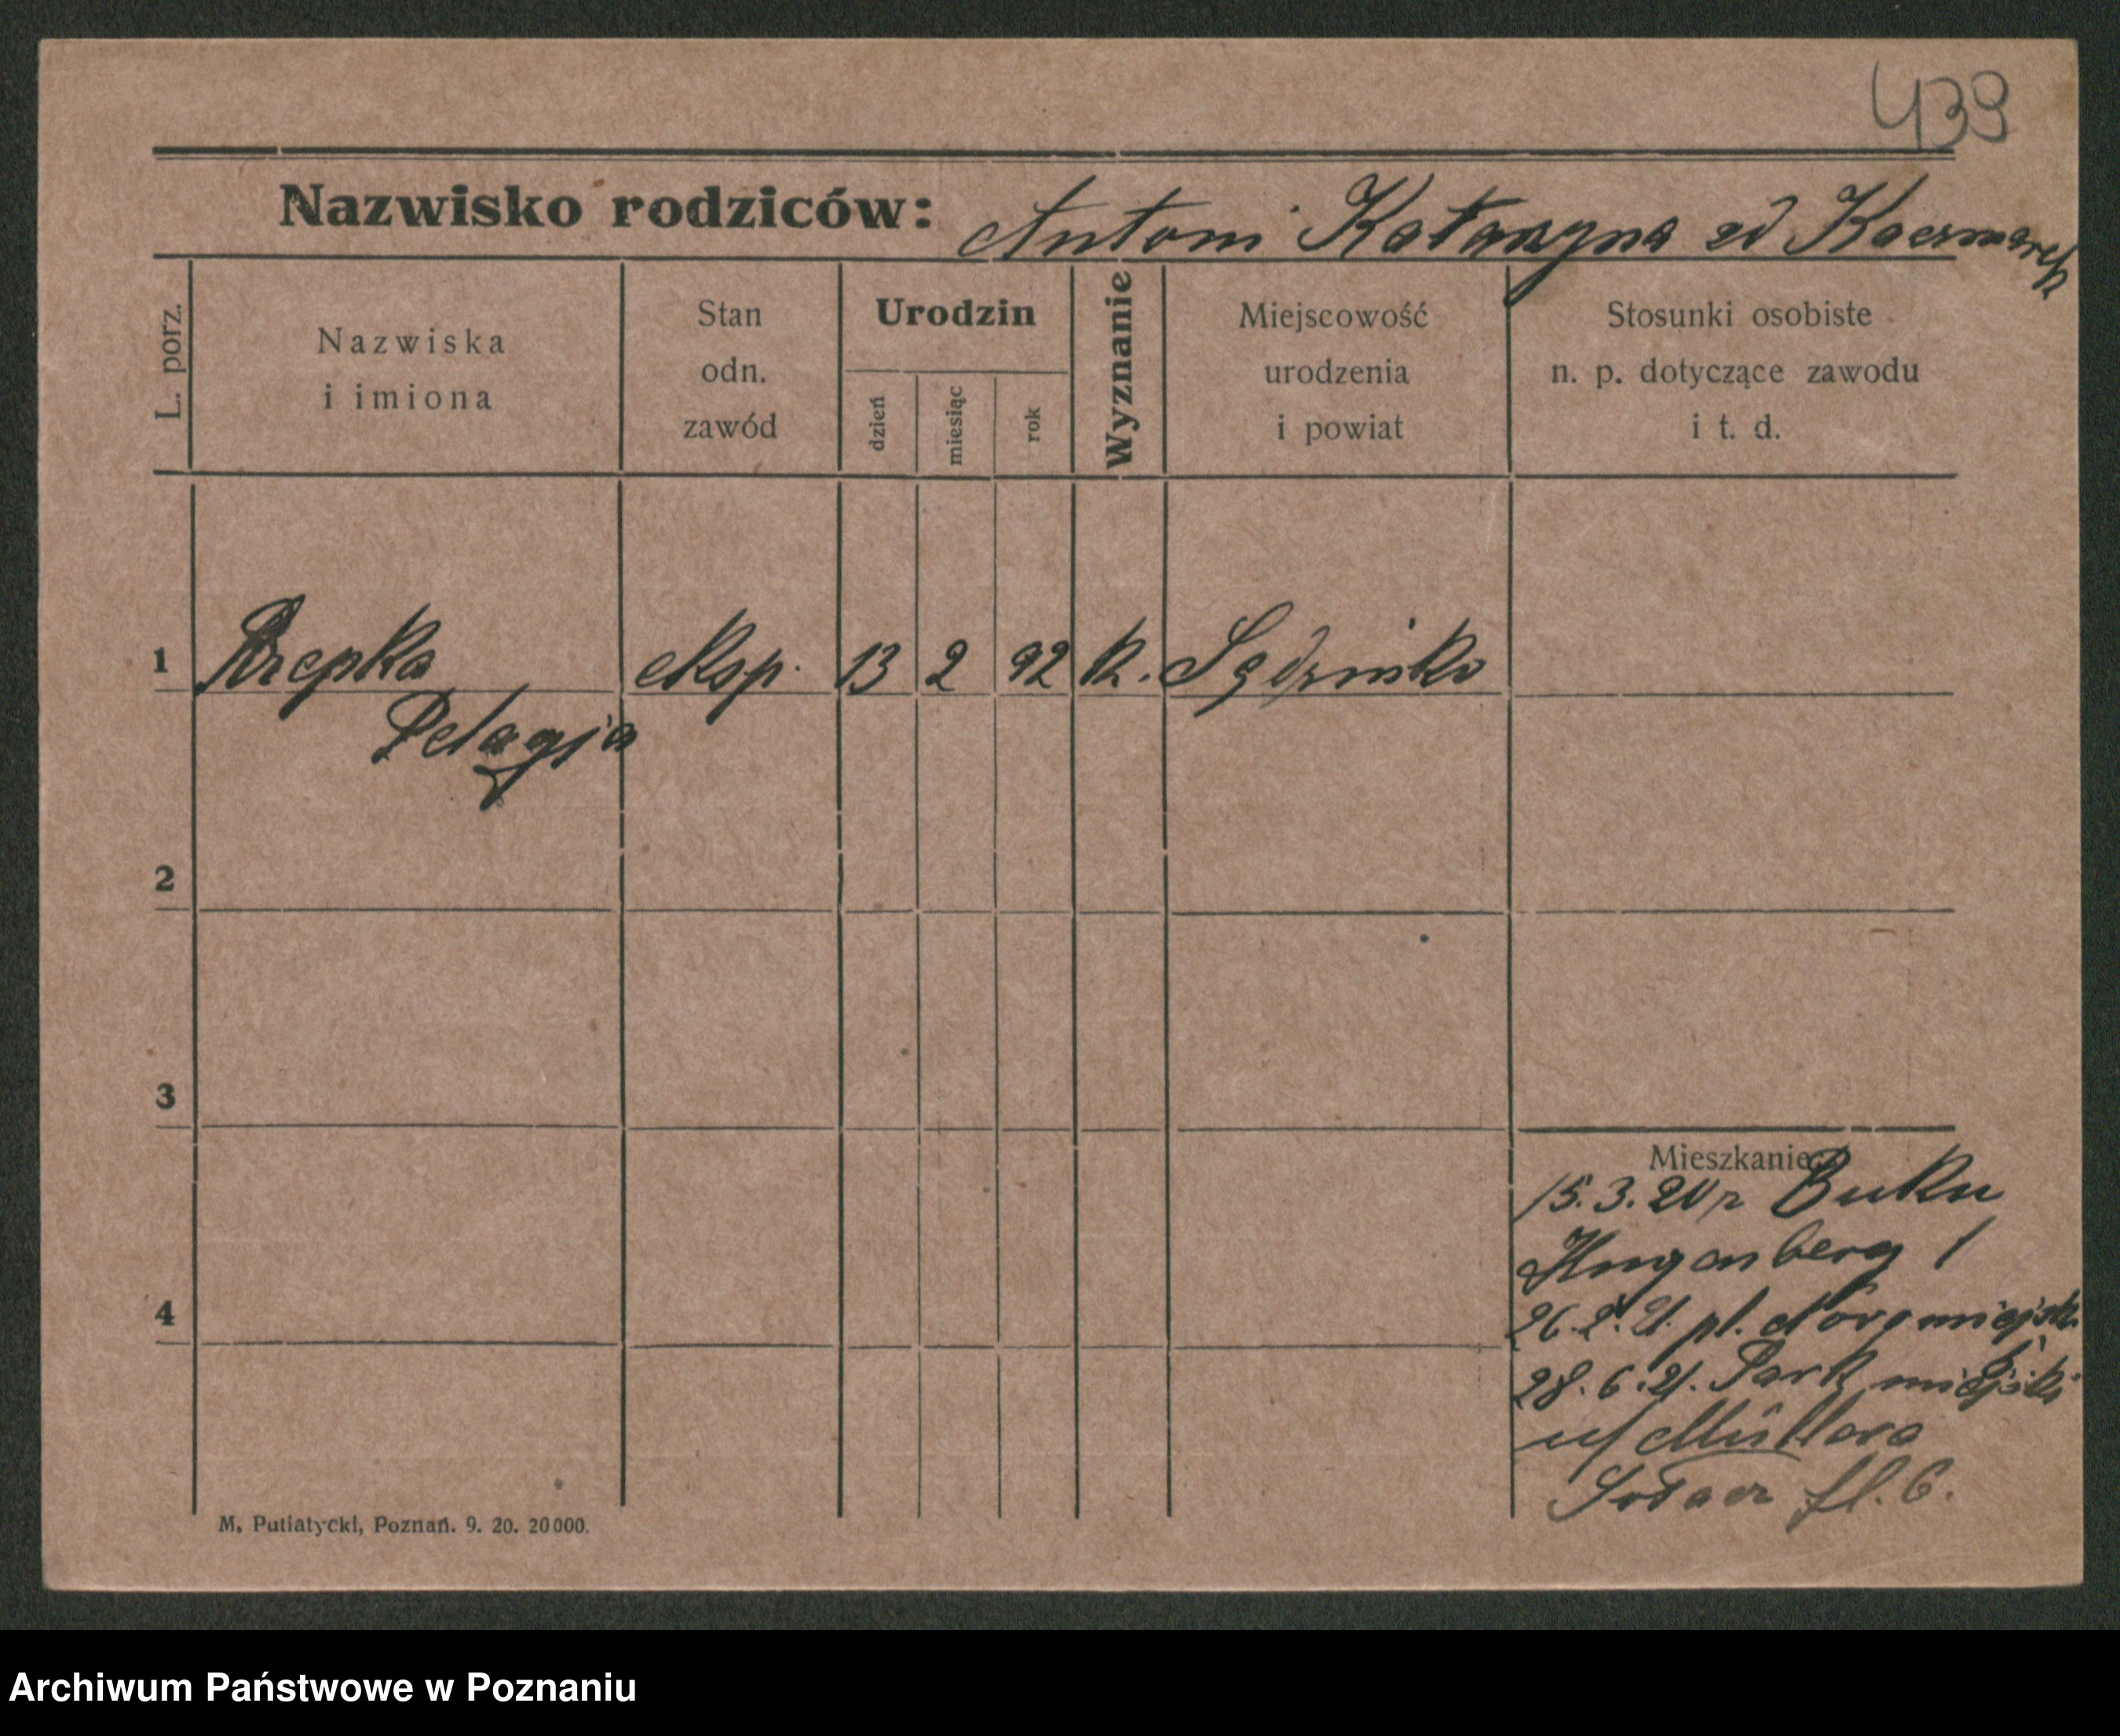 439
Nazwisko rodziców: Antoni Katarzyna zd Kaczmarek
L. porz.
Nazwiska
i imiona
Stan
odn.
zawód
Urodzin
dzień
miesiąc
rok
Wyznanie
Miejscowość
urodzenia
i powiat
Stosunki osobiste
n. p. dotyczące zawodu
i t. d.
1 Rzepka eksp. 13 2 92 k. Sędzinko
Pelagja
2
3
4
Mieszkanie:
15.3.20 r Buku
1
26.2.21. pl.
28.6.21. Park miejski
u/ Müllera
Sołacz fl. 6.
M. Putiatycki, Poznań. 9. 20. 20000.
Archiwum Państwowe w Poznaniu